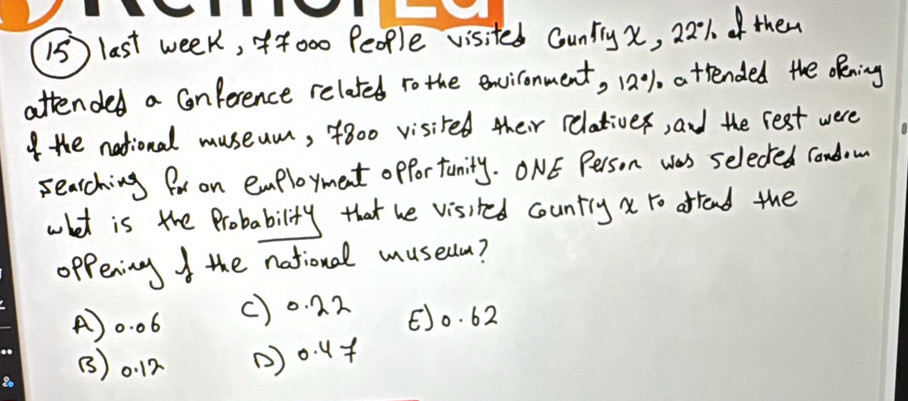 15) last week, 77000 People visited Cuntry x, 22% of them
attended a Conference related to the environment, 12% attended the opening
of the national museum, 7800 visited their relatives, and the rest were
searching for an employment opportunity. ONE Person was selected random
what is the Probability that he visited country x to attend the
oppening of the national museum?
A) 0.06 C) 0.22 E) 0.62
B) 0.12 D) 0.47